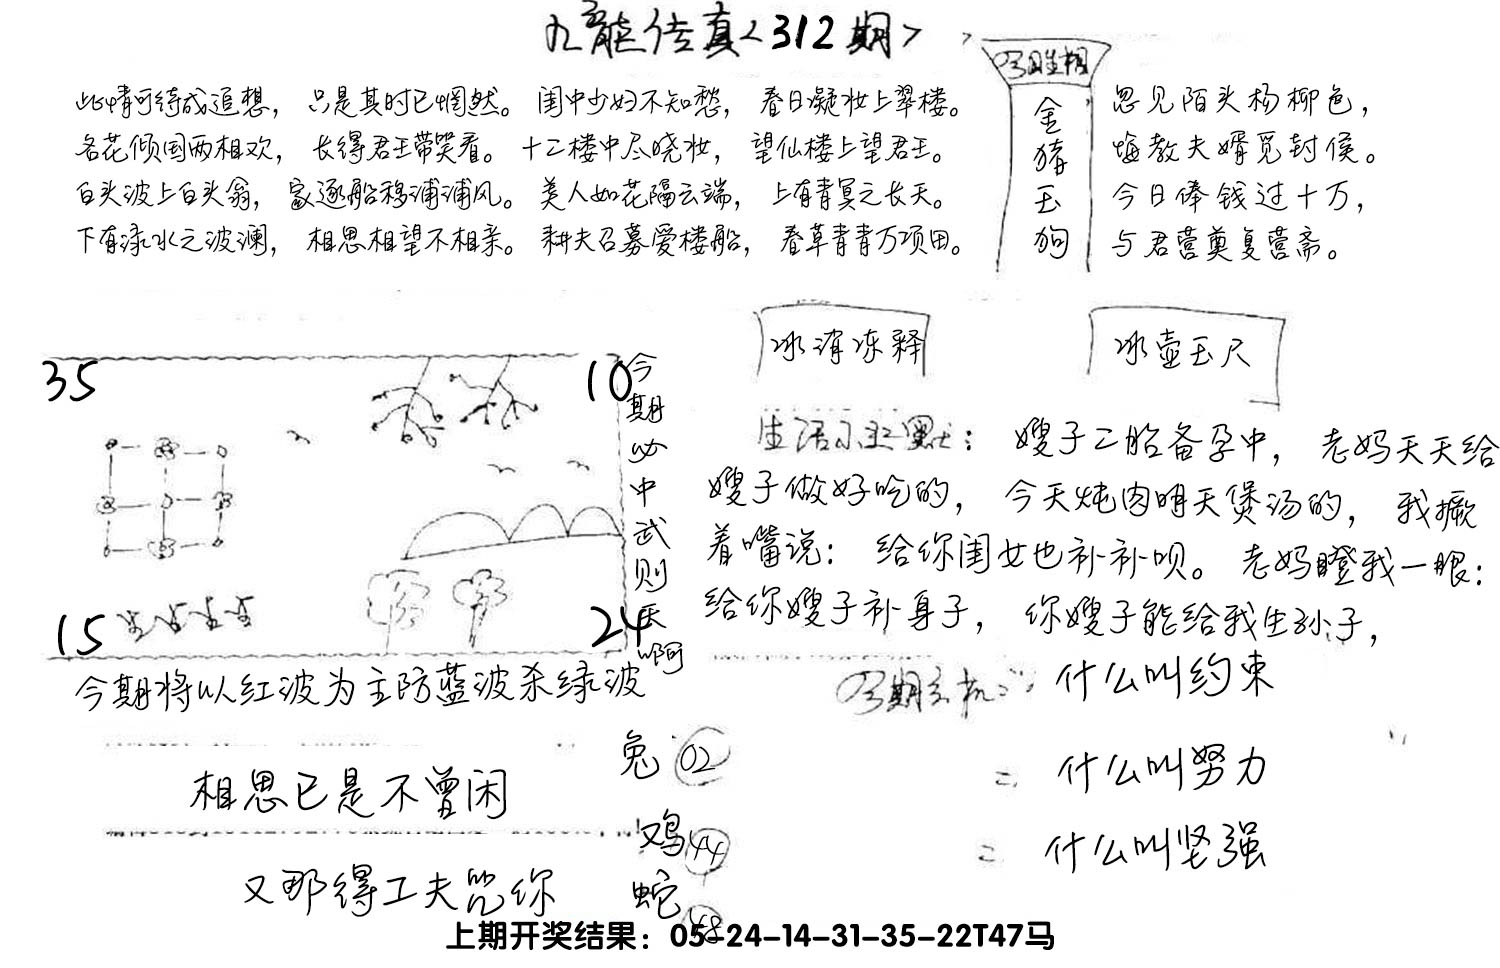 九龙传真<312期>
今日生相
金猪玉狗
此情可待成追想，只是其时已惘然。闺中少妇不知愁，春日凝妆上翠楼。
名花倾国两相欢，长得君王带笑看。十二楼中尽晓妆，望仙楼上望君王。
白头波上白头翁，家逐船移浦浦风。美人如花隔云端，上有青冥之长天。
下有渌水之波澜，相思相望不相亲。耕夫召募爱楼船，春草青青万项田。
忽见陌头杨柳色，
悔教夫婿觅封侯。
今日俸钱过十万，
与君营奠复营斋。
35
10
15
24
今期必中武则天啊
今期将以红波为主防蓝波杀绿波
冰消冻释
冰壶玉尺
生活小幽默：嫂子二胎备孕中，老妈天天给
嫂子做好吃的，今天炖肉明天煲汤的，我撅
着嘴说：给你闺女也补补呗。老妈瞪我一眼：
给你嫂子补身子，你嫂子能给我生孙子，
今期玄机：什么叫约束
二 什么叫努力
二 什么叫坚强
相思已是不曾闲
又那得工夫咒你
兔 02
鸡 44
蛇 48
上期开奖结果：05-24-14-31-35-22T47马